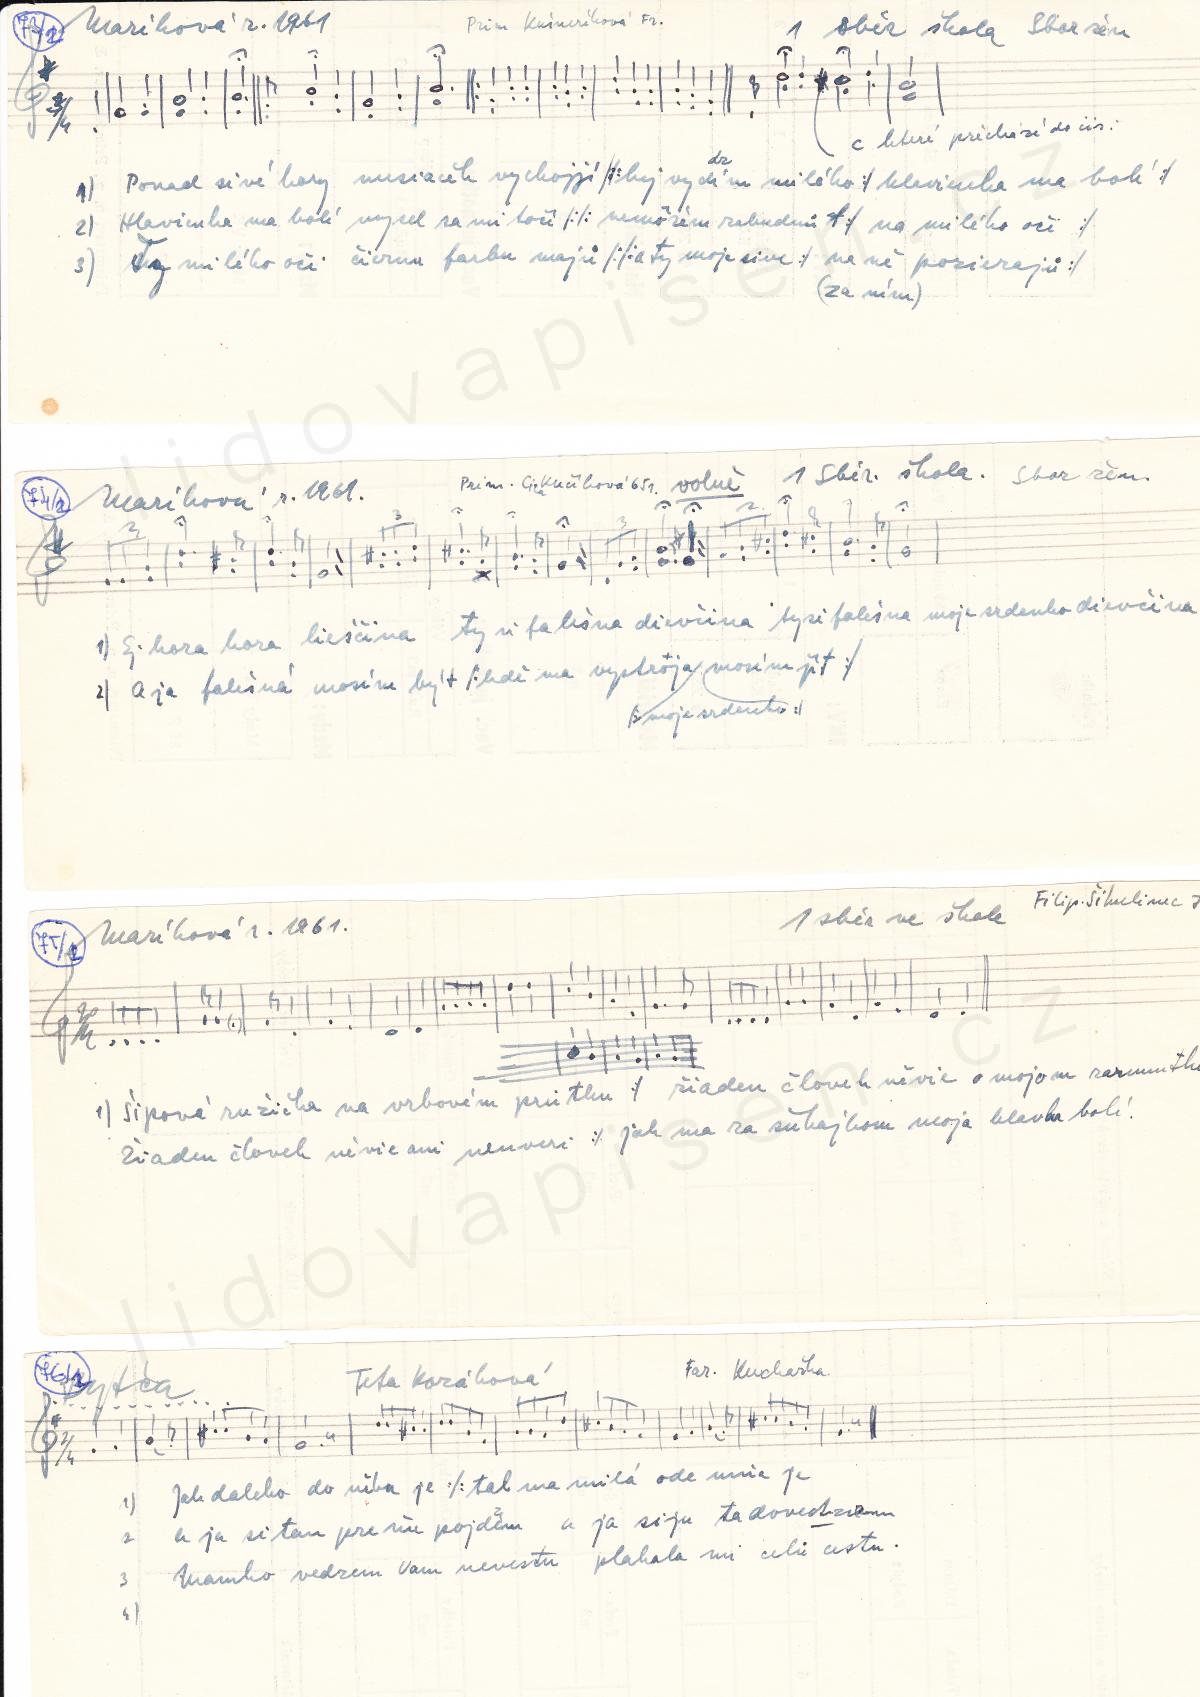 73/2 Maríková r. 1961 Prim Kušnieriková Fr. 1 sběr škola Sbor žen
2/4
c které přichází do cis.
1) Ponad sivé hory mesiačék vychojjí /:hej vydím milého:/ hlavienka ma bolí :/
dz
2) Hlavienka ma bolí mysel sa mi točí /:/: nemôžem zabudnú :/ na milého oči :/
3) Ty milého oči čiernu farbu majú /:/: a ty moje sive :/ na ně pozierajú :/
(za ním)
74/2 Maríková r. 1961. Prim. Kučíková 65r. volně 1 Sběr. škola. Sbor žen.
2 3 3 2
1) Ej hora hora lieščina ty si falešna dievčina ty si falešna moje srdenko dievčina
2) A ja falešná mosím být /: kdě ma vystrója mosím jít :/
/: moje srdenko :/
75/2 Maríková r. 1961. 1 sběr ve škole Filip. Šikulinec 7
1) Šípová ružička na vrbovém prútku :/ žiaden človek něvie o mojom zarmutku
Žiaden človek něvie ani neuveri :/: jak ma za šuhajkom moja hlavka bolí.
76/2 Bytča Teta Kozáková Far. Kuchařka
2/4
1) Jak daleko do něba je :/: tak ma milá ode mnia je
2 a ja si tam pre ňu pojděm a ja si ju ta dovedzem
3 Mamko vedzem vam nevestu plakala mi celú cestu.
4)
lidovapisen.cz
lidovapisen.cz